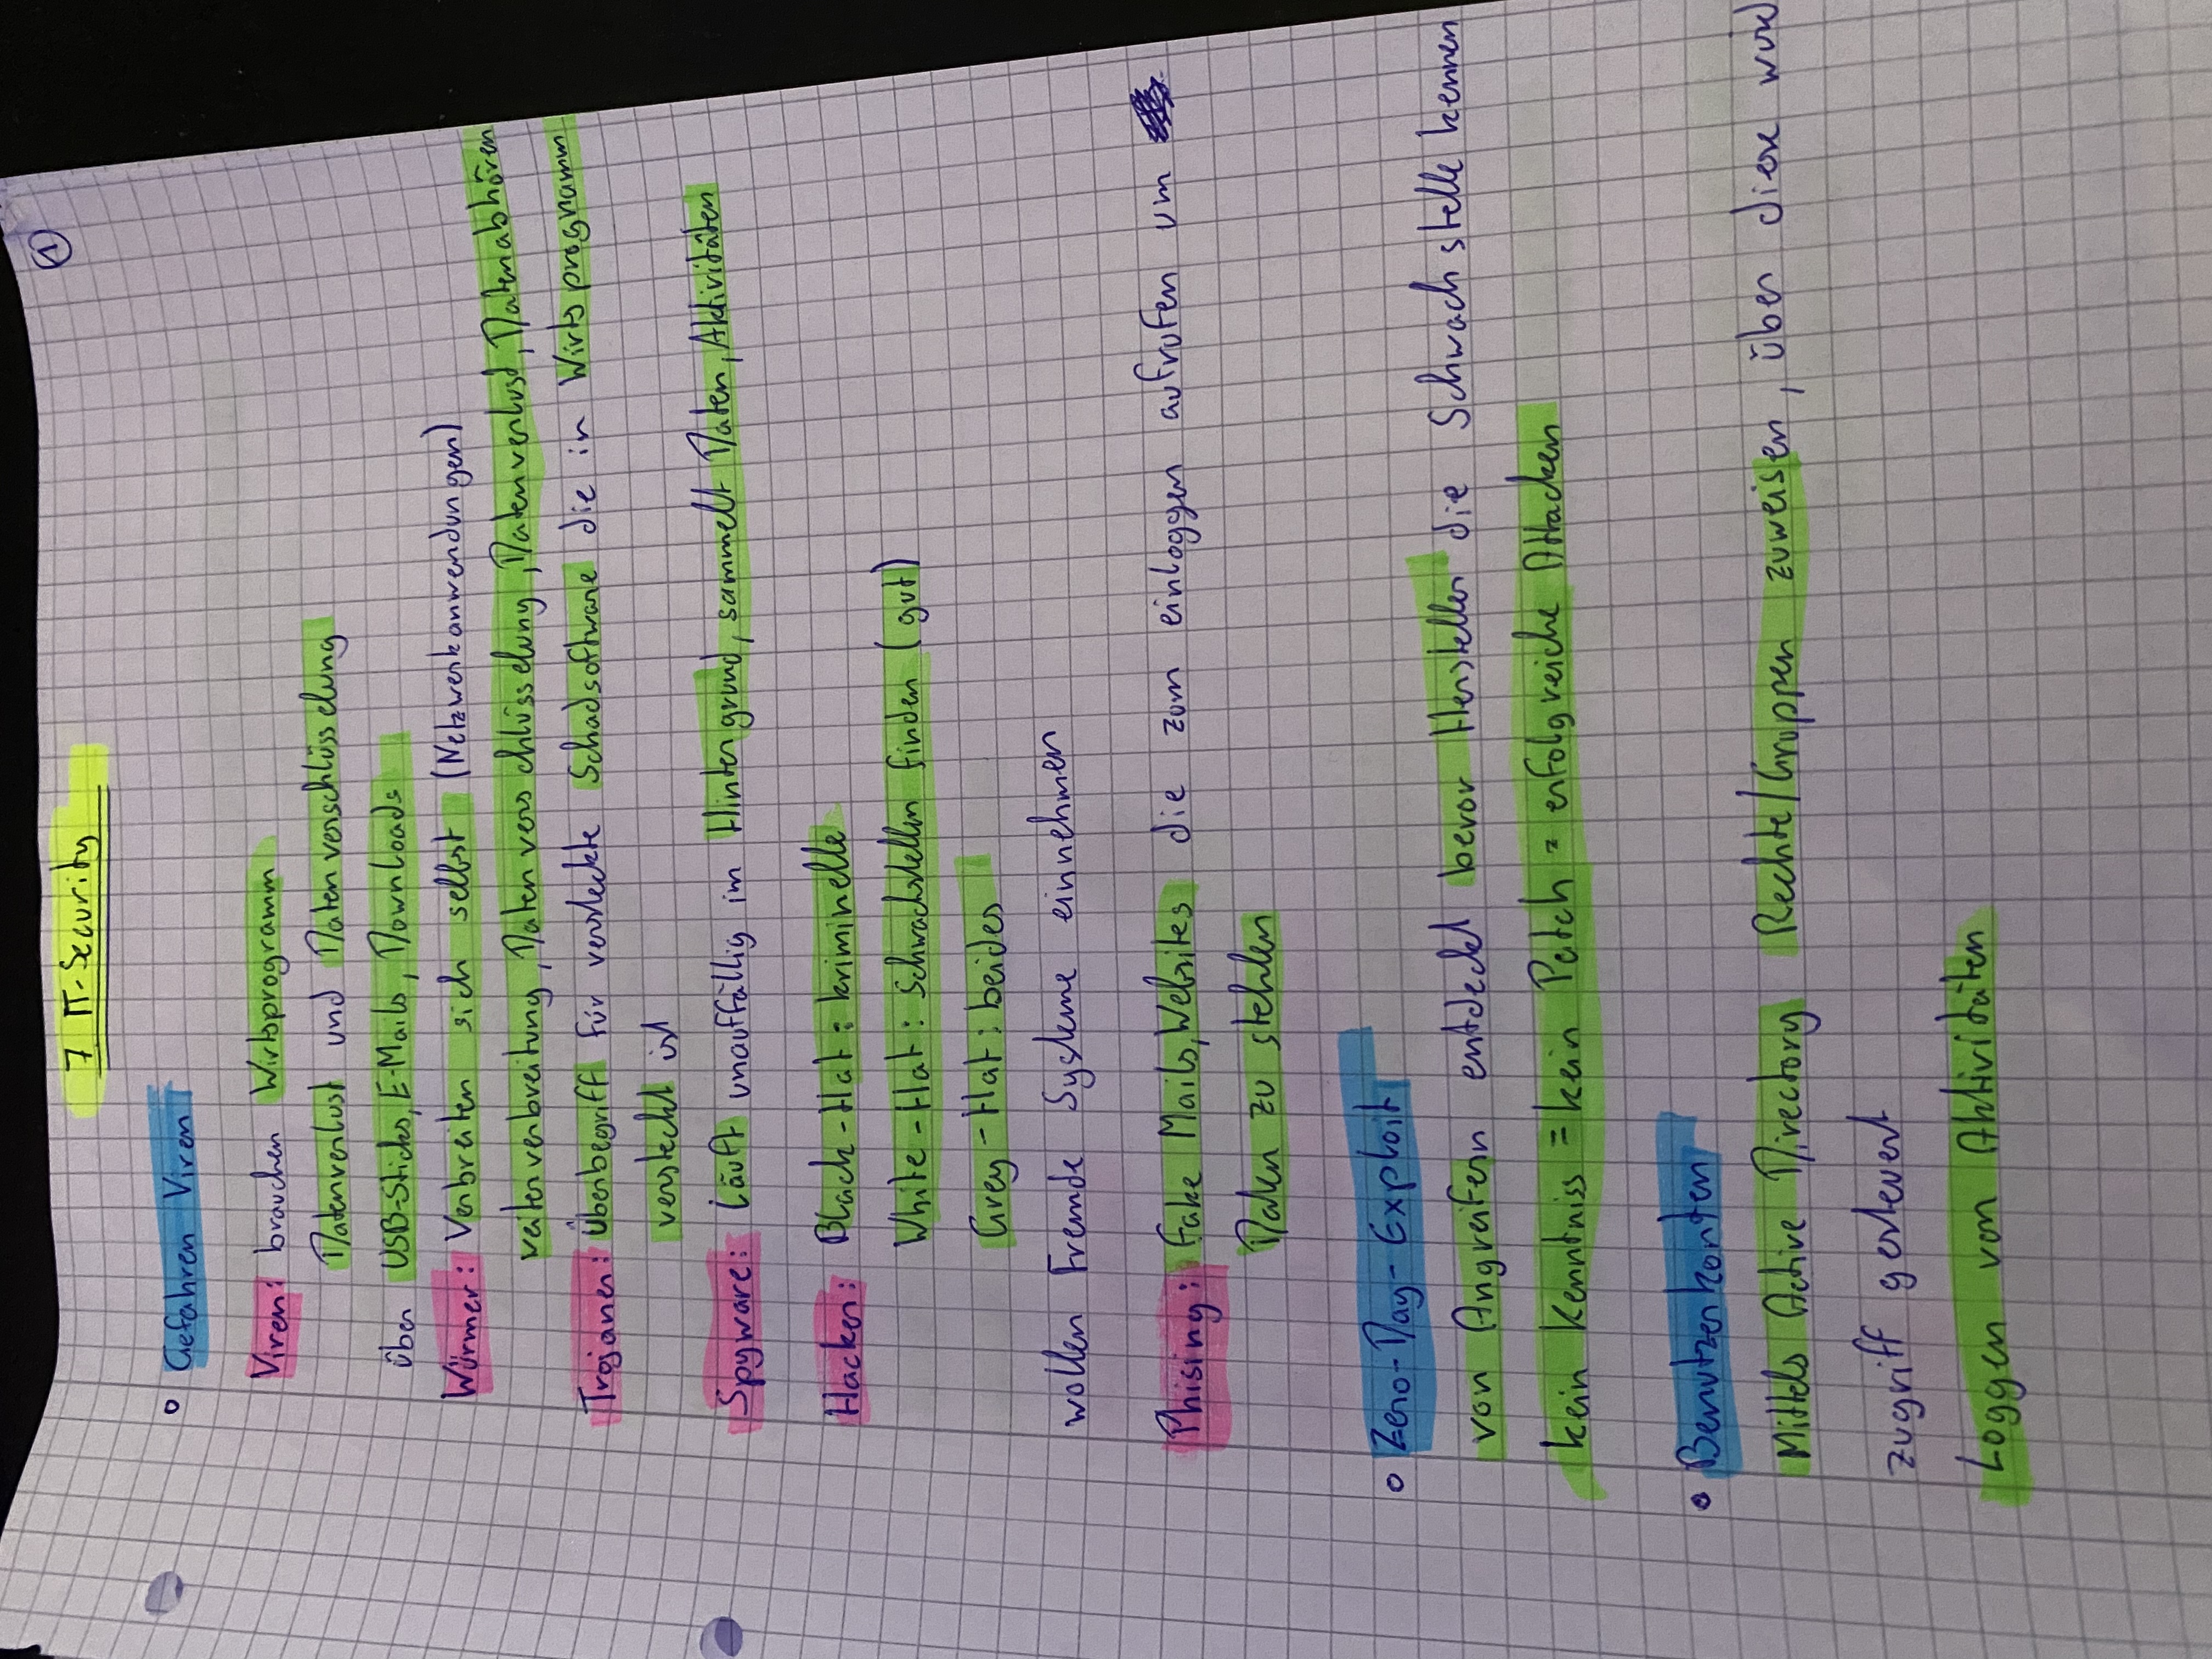 1
7 IT-Security
Gefahren Viren
Viren: brauchen Wirtsprogramm
Datenverlust und Datenverschlüsselung
über USB-Sticks, E-Mails, Downloads
Würmer: Verbreiten sich selbst (Netzwerkanwendungen)
weiterverbreitung, Datenverschlüsselung, Datenverlust, Datenabhören
Trojaner: Überbegriff für versteckte Schadsoftware die in Wirtsprogramm
versteckt ist
Spyware: Läuft unauffällig im Hintergrund, sammelt Daten, Aktivitäten
Hacker: Black-Hat: kriminelle
White-Hat: Schwachstellen finden (gut)
Grey-Hat: beides
wollen Fremde Systeme einnehmen
Phising: Fake Mails, Websites die zum einloggen aufrufen um
Daten zu stehlen
Zero-Day-Exploit
von Angreifern entdeckt bevor Hersteller die Schwachstelle kennen
kein Kenntniss = kein Patch = erfolgreiche Attacken
Benutzerkonten
Mittels Active Directory Rechte/Gruppen zuweisen, über diese wird
zugriff gesteuert
Loggen von Aktivitäten